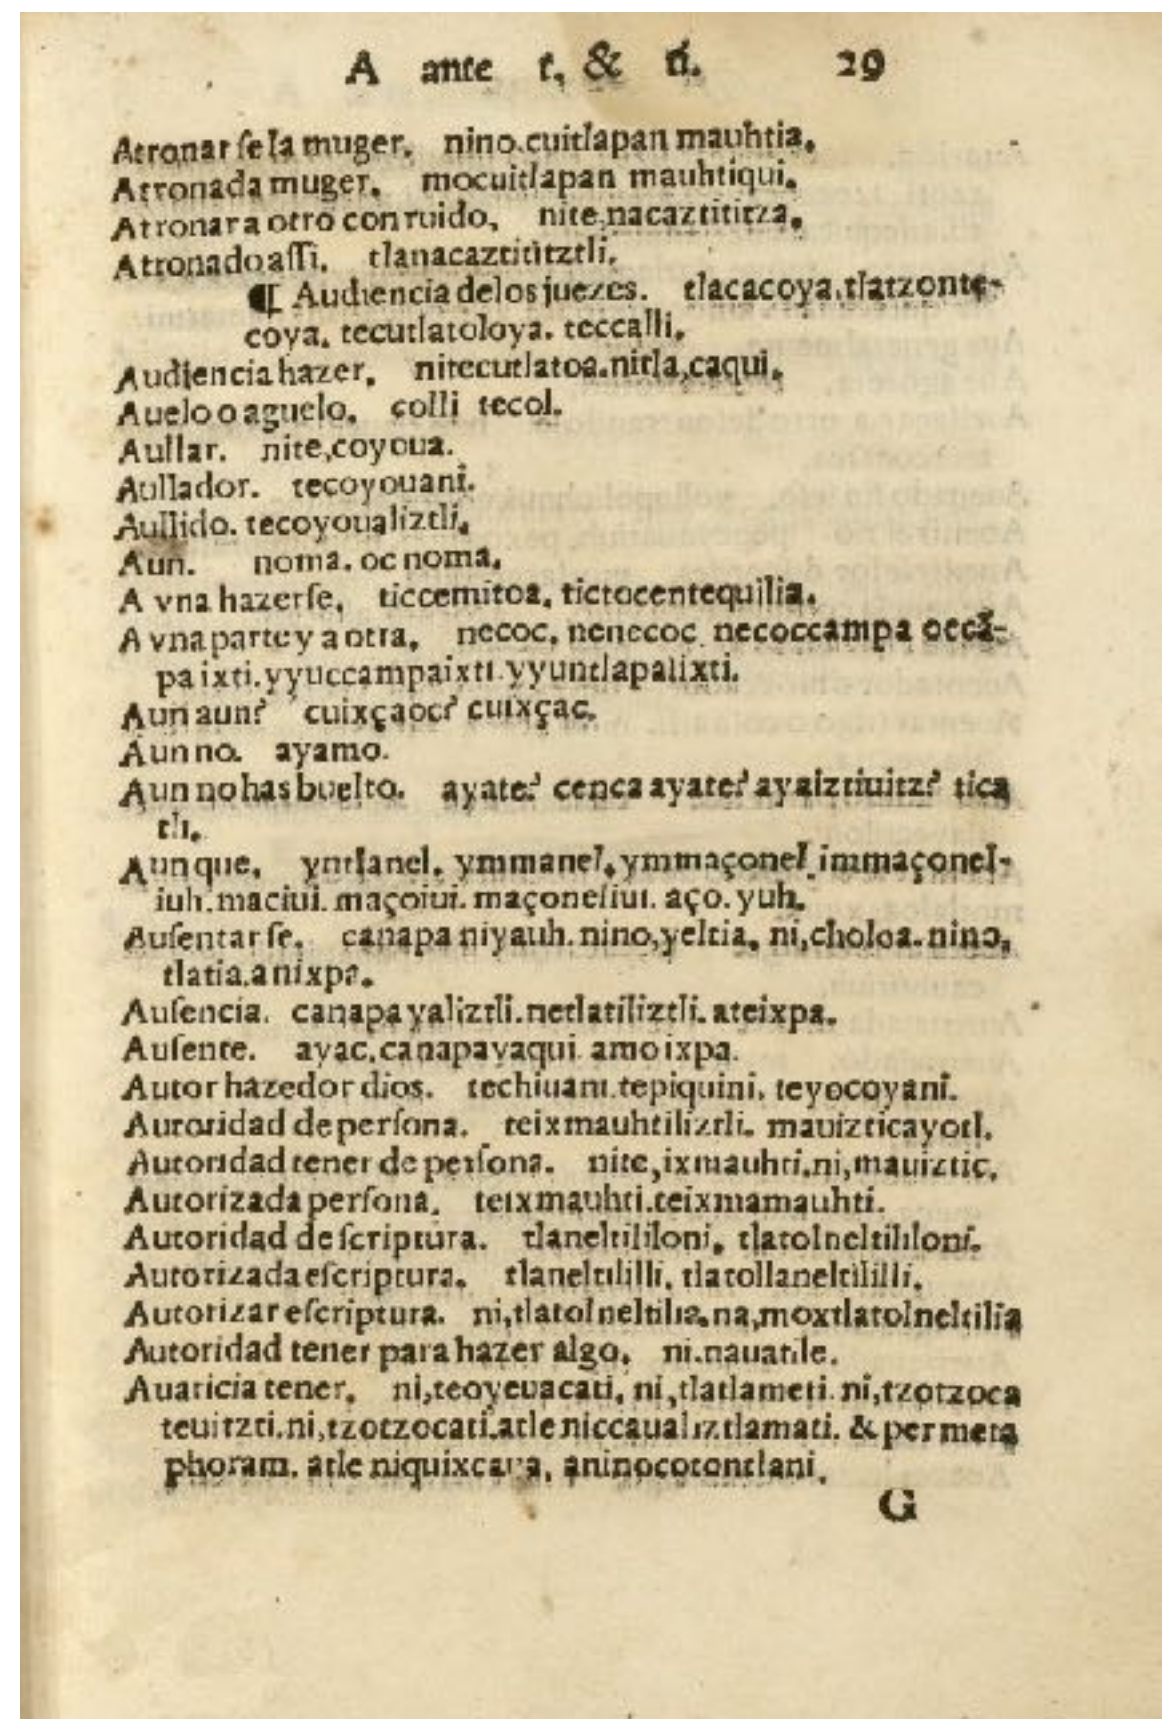 A ante t, & ú. 29
Atronarſe la muger, nino.cuitlapan mauhtia,
Atronada muger, mocuitlapan mauhtiqui.
Atronar a otro con ruido, nite,nacaztititza,
Atronado aſſi. tlanacaztititztli.
¶ Audiencia delos juezes. tlacacoya.tlatzonte-
coya. tecutlatoloya. teccalli.
Audiencia hazer, nitecutlatoa.nitla,caqui.
Auelo o aguelo. colli tecol.
Aullar. nite,coyoua.
Aullador. tecoyouani.
Aullido. tecoyoualiztli.
Aun. noma. oc noma.
A vna hazerſe, ticcemitoa. tictocentequilia.
A vna parte y a otra, necoc. nenecoc. necoccampa occã-
pa ixti.yyuccampaixti.yyuntlapalixti.
Aun aun? cuixçaoc? cuixçac.
Aun no. ayamo.
Aun no has buelto. ayate? cenca ayate? ayaiztiuitz? tica
th.
Aunque, yntlanel. ymmanel.ymmaçonel.immaçonel-
iuh.maciui.maçoiui.maçoneliui. aço.yuh.
Auſentarſe. canapa niyauh.nino,yeltia, ni,choloa.nino,
tlatia.anixpa.
Auſencia. canapa yaliztli.netlatiliztli.ateixpa.
Auſente. ayac.canapayaqui. amo ixpa.
Autor hazedor dios. techiuani.tepiquini. teyocoyani.
Autoridad de perſona. teixmauhtiliztli. mauizticayotl.
Autoridad tener de perſona. nite,ixmauhti.ni,mauiztic.
Autorizada perſona. teixmauhti.teixmamauhti.
Autoridad de ſcriptura. tlaneltililoni, tlatolneltililoni.
Autorizada eſcriptura. tlaneltililli. tlatollaneltililli.
Autorizar eſcriptura. ni,tlatolneltilia.na,moxtlatolneltilia
Autoridad tener para hazer algo. ni.nauatile.
Auaricia tener. ni,teoyeuacati. ni,tlatlameti. ni,tzotzoca
teuitzti.ni,tzotzocati.atle niccaualiztlamati. & per meta
phoram. atle niquixcaua, aninocotontlani.
G